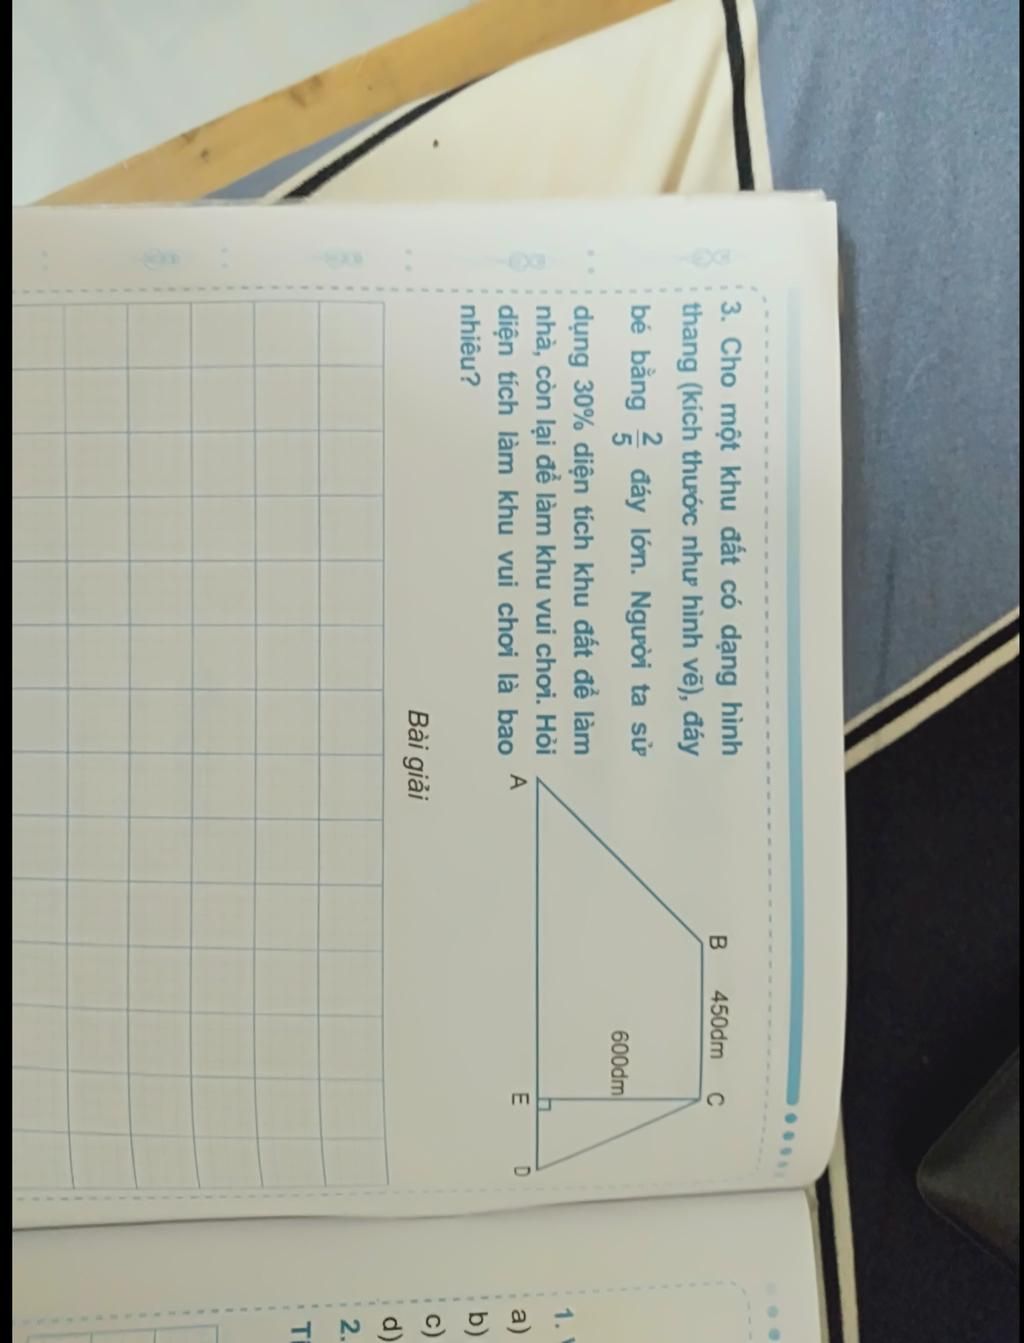 3. Cho một khu đất có dạng hình
thang (kích thước như hình vẽ), đáy
bé bằng 2/5 đáy lớn. Người ta sử
dụng 30% diện tích khu đất để làm
nhà, còn lại để làm khu vui chơi. Hỏi
diện tích làm khu vui chơi là bao
nhiêu?
B 450dm C
600dm
A E D
Bài giải
1.
a)
b)
c)
d)
2.